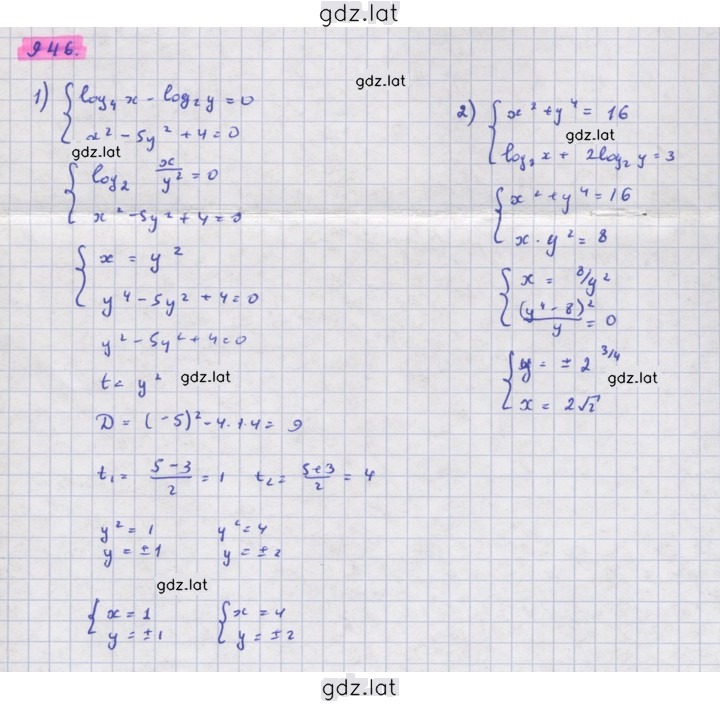 gdz.lat
946.
1) { log₄ x - log₂ y = 0
x² - 5y² + 4 = 0
gdz.lat
{ log₂ x/y² = 0
x² - 5y² + 4 = 0
{ x = y²
y⁴ - 5y² + 4 = 0
y² - 5y² + 4 = 0
t = y²
gdz.lat
D = (-5)² - 4·1·4 = 9
t₁ = (5-3)/2 = 1 t₂ = (5+3)/2 = 4
y² = 1 y² = 4
y = ±1 y = ±2
gdz.lat
{ x = 1 { x = 4
y = ±1 y = ±2
gdz.lat
2) { x² + y⁴ = 16
gdz.lat
log₂ x + 2log₂ y = 3
{ x² + y⁴ = 16
x · y² = 8
{ x = 8/y²
(y⁴ - 8)²/y = 0
{ y = ± 2^3/4
gdz.lat
x = 2√2
gdz.lat